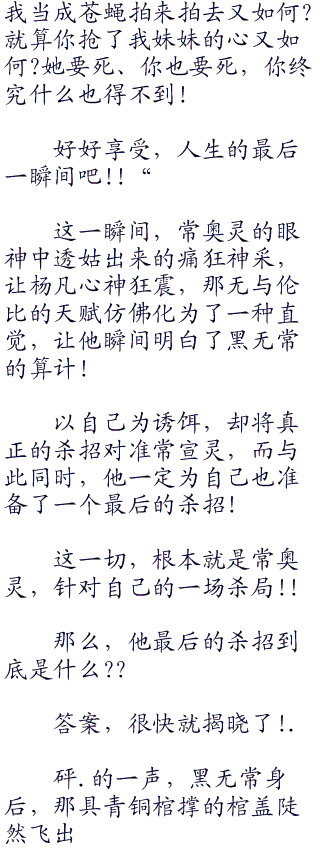 我当成苍蝇拍来拍去又如何?
就算你抢了我妹妹的心又如
何?她要死、你也要死，你终
究什么也得不到!
好好享受，人生的最后
一瞬间吧!!“
这一瞬间，常奥灵的眼
神中透姑出来的痛狂神采，
让杨凡心神狂震，那无与伦
比的天赋仿佛化为了一种直
觉，让他瞬间明白了黑无常
的算计!
以自己为诱饵，却将真
正的杀招对准常宣灵，而与
此同时，他一定为自己也准
备了一个最后的杀招!
这一切，根本就是常奥
灵，针对自己的一场杀局!!
那么，他最后的杀招到
底是什么??
答案，很快就揭晓了!.
砰.的一声，黑无常身
后，那具青铜棺撑的棺盖陡
然飞出